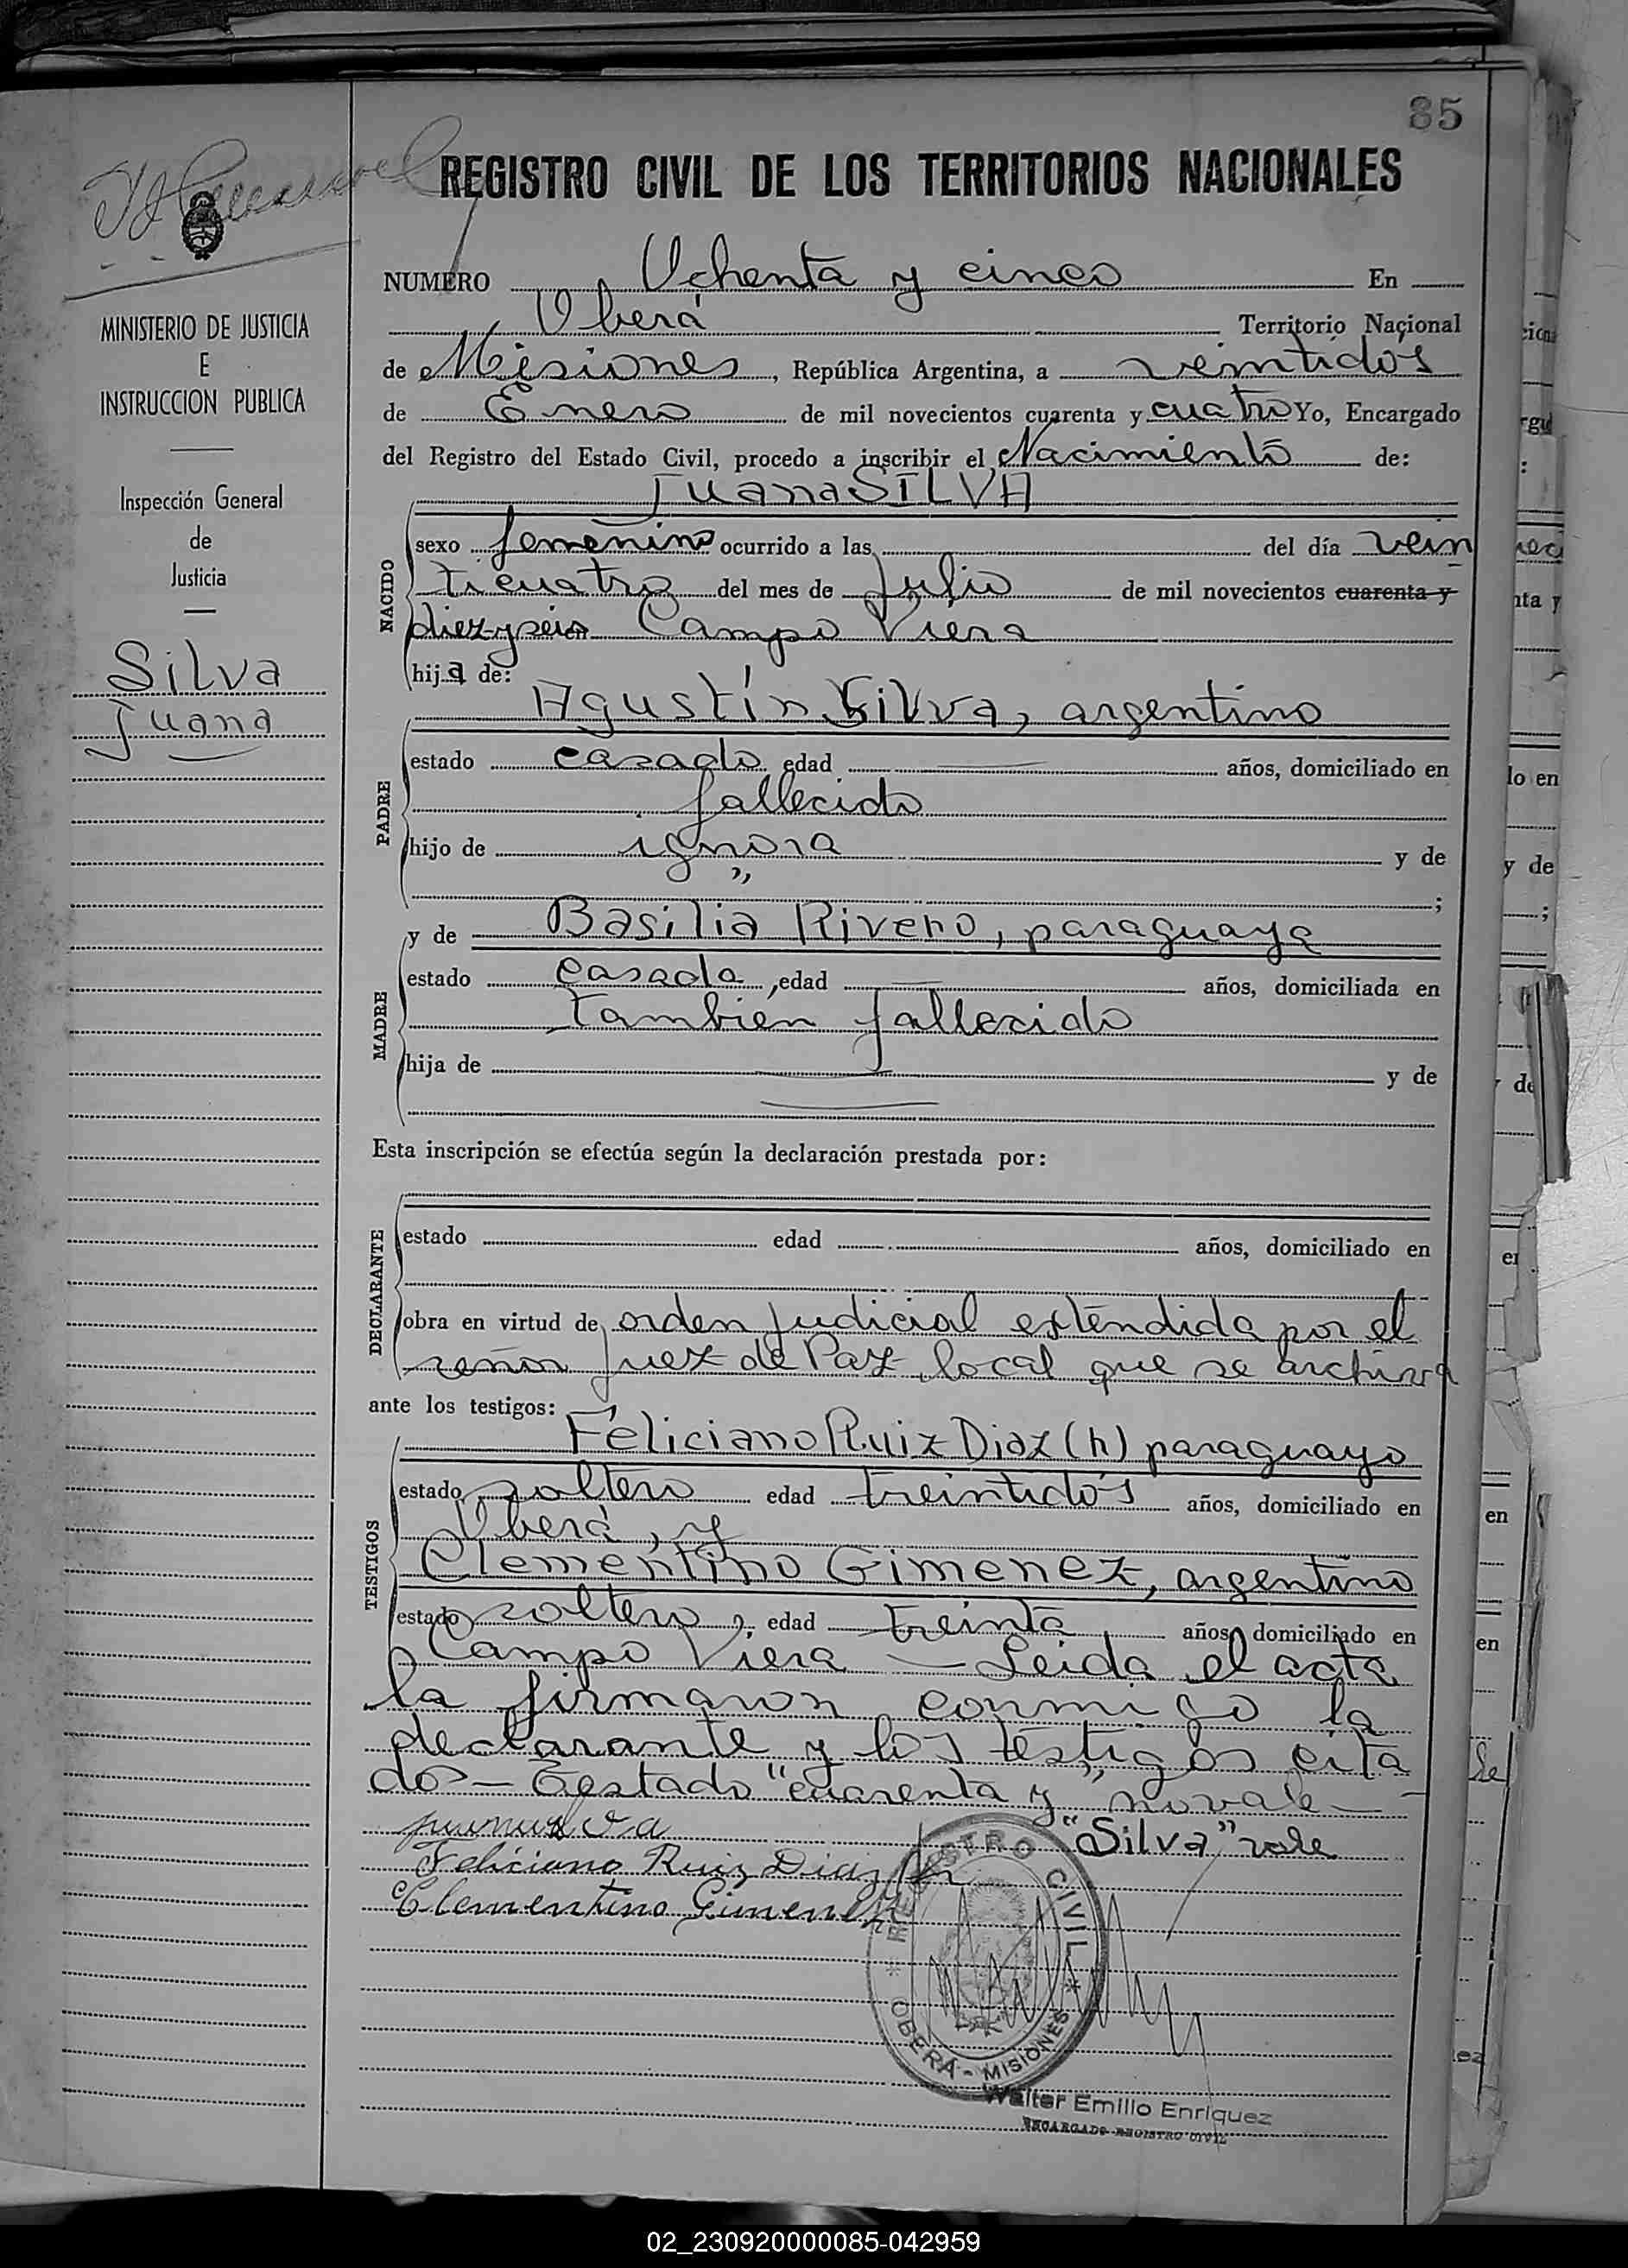 85
REGISTRO CIVIL DE LOS TERRITORIOS NACIONALES
MINISTERIO DE JUSTICIA
E
INSTRUCCION PUBLICA
Inspección General
de
Justicia
Silva
Juana
NUMERO Ochenta y cinco En
Oberá Territorio Nacional
de Misiones, República Argentina, a veintidós
de Enero de mil novecientos cuarenta y cuatro Yo, Encargado
del Registro del Estado Civil, procedo a inscribir el Nacimiento de:
Juana SILVA
NACIDO
sexo femenino ocurrido a las del día vein
ticuatro del mes de Julio de mil novecientos cuarenta y
diez y seis Campo Viera
hija de:
Agustín Silva, argentino
PADRE
estado casado edad años, domiciliado en
fallecido
hijo de ignora y de
" ;
y de Basilia Rivero, paraguaya
MADRE
estado casada, edad años, domiciliada en
tambien fallecido
hija de y de
Esta inscripción se efectúa según la declaración prestada por:
DECLARANTE
estado edad años, domiciliado en
obra en virtud de orden judicial extendida por el
señor Juez de Paz local que se archiva
ante los testigos:
Feliciano Ruiz Diaz (h) paraguayo
TESTIGOS
estado soltero edad treintidós años, domiciliado en
Oberá, y
Clementino Gimenez, argentino
estado soltero, edad treinta años, domiciliado en
Campo Viera — Leida el acta
la firmaron conmigo la
declarante y los testigos cita
dos — Testado "cuarenta y" no vale —
"Silva" vale
Feliciano Ruiz Diaz (h)
Clementino Gimenez
REGISTRO CIVIL
OBERÁ - MISIONES
Walter Emilio Enriquez
ENCARGADO REGISTRO CIVIL
02_230920000085-042959